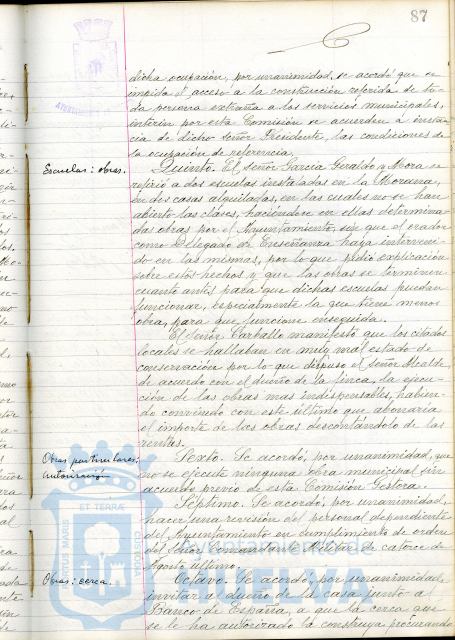 87
dicha ocupación, por unanimidad, se acordó que se
impida el acceso a la construcción referida de to-
da persona extraña a los servicios municipales,
interin por esta Comisión se acuerden a instan-
cia de dicho Señor Presidente, las condiciones de
la ocupación de referencia.
Escuelas: obras.
Quinto. El señor García Geraldo y Mora se
refirió a dos escuelas instaladas en la Morana,
en dos casas alquiladas, en las cuales no se han
abierto las clases, haciéndose en ellas determina-
das obras por el Ayuntamiento, sin que el orador
como Delegado de Enseñanza haya interveni-
do en las mismas, por lo que pidió explicación
sobre estos hechos y que las obras se terminen
cuanto antes para que dichas escuelas puedan
funcionar, especialmente la que tiene menos
obra, para que funcione enseguida.
El Señor Carballo manifestó que los citados
locales se hallaban en muy mal estado de
conservación por lo que dispuso el señor Alcalde,
de acuerdo con el dueño de la finca, la ejecu-
ción de las obras mas indispensables, habien-
do convenido con este último que abonaria
el importe de las obras descontandolo de las
rentas.
Obras particulares:
autorización
Sexto. Se acordó, por unanimidad, que
no se ejecute ninguna obra municipal sin
acuerdo previo de esta Comisión Gestora.
Septimo. Se acordó, por unanimidad,
hacer una revisión del personal dependiente
del Ayuntamiento en cumplimiento de orden
del Señor Comandante Militar de catorce de
Agosto último.
Obras: cerca
Octavo. Se acordó, por unanimidad,
invitar al dueño de la casa junto al
Banco de España, a que la cerca que
se le ha autorizado la construya procurando
PORTUS MARIS
ET TERRAE
CUSTODIA
Ayuntamiento de
HUELVA